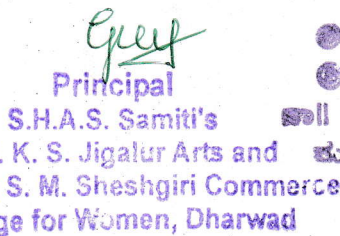 Principal
S.H.A.S. Samiti's
. K. S. Jigalur Arts and
S. M. Sheshgiri Commerce
ge for Women, Dharwad